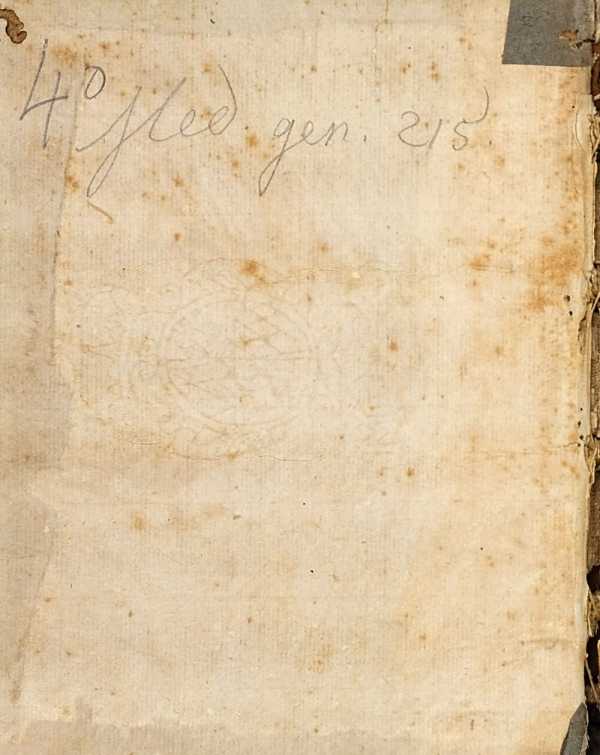 4° Med. gen. 215.